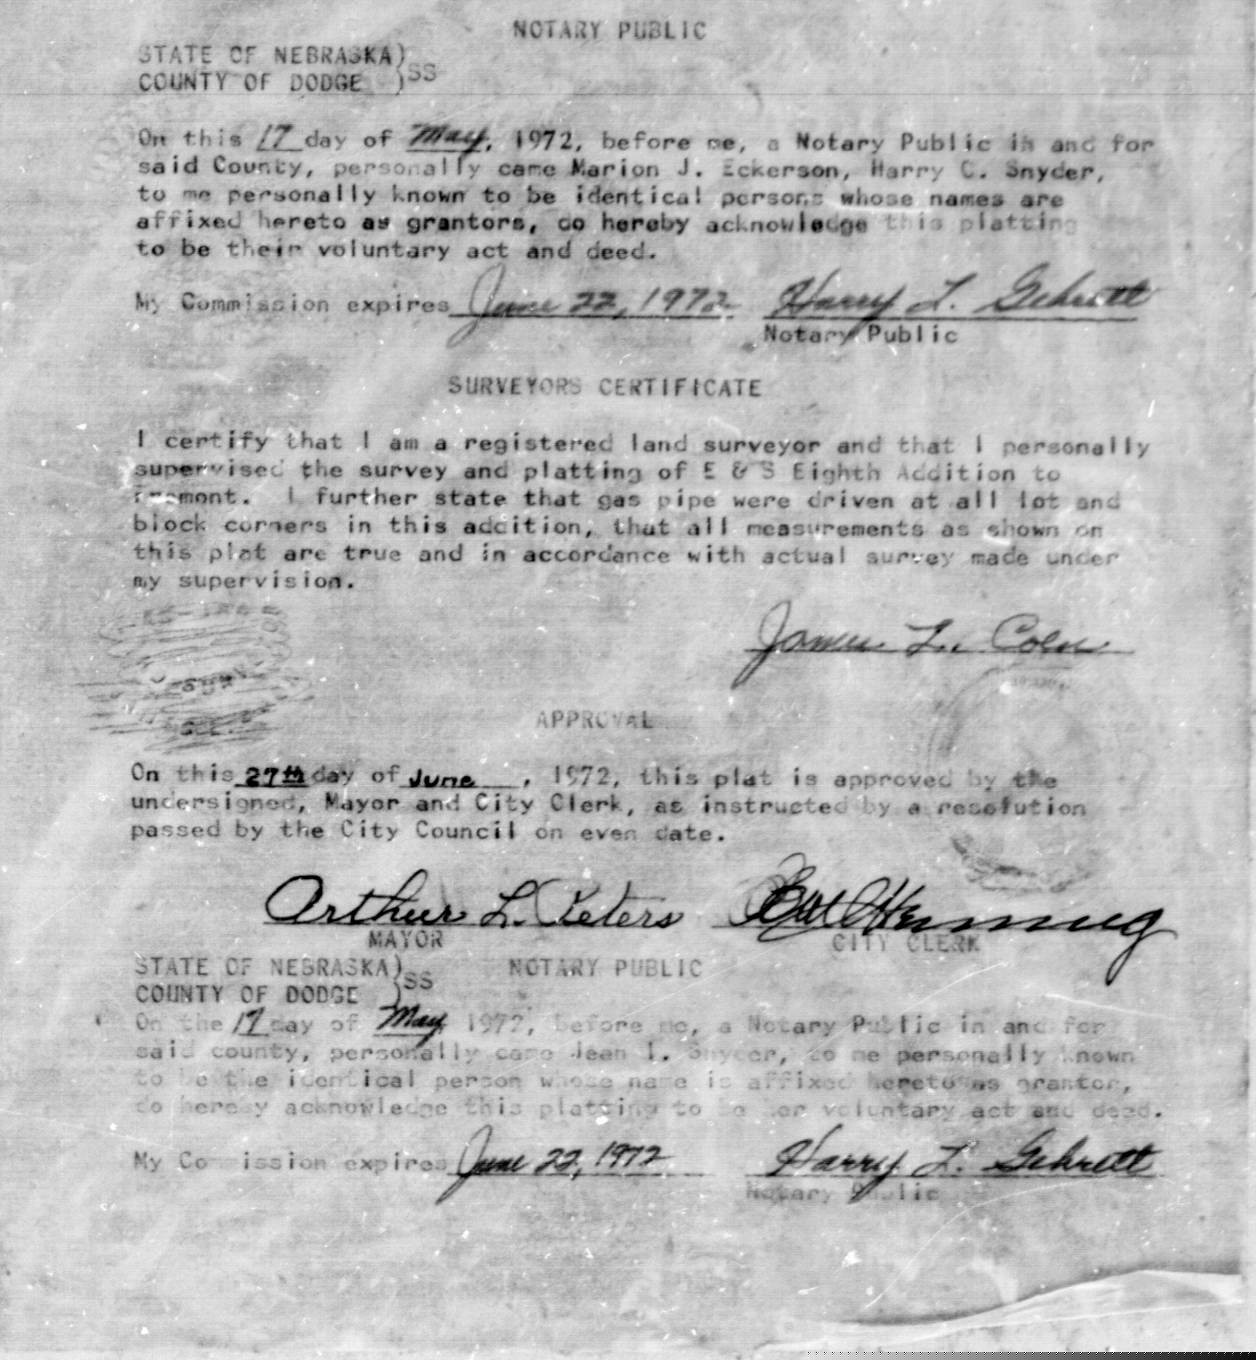 NOTARY PUBLIC
STATE OF NEBRASKA)
COUNTY OF DODGE )SS
On this 17 day of May, 1972, before me, a Notary Public in and for
said County, personally came Marion J. Eckerson, Harry C. Snyder,
to me personally known to be identical persons whose names are
affixed hereto as grantors, do hereby acknowledge this platting
to be their voluntary act and deed.
My Commission expires June 22, 1972 Harry L. Gehrett
Notary Public
SURVEYORS CERTIFICATE
I certify that I am a registered land surveyor and that I personally
supervised the survey and platting of E & S Eighth Addition to
Fremont. I further state that gas pipe were driven at all lot and
block corners in this addition, that all measurements as shown on
this plat are true and in accordance with actual survey made under
my supervision.
James L. Coen
APPROVAL
On this 27th day of June , 1972, this plat is approved by the
undersigned, Mayor and City Clerk, as instructed by a resolution
passed by the City Council on even date.
Arthur L. Peters
MAYOR CITY CLERK
STATE OF NEBRASKA)SS NOTARY PUBLIC
COUNTY OF DODGE )
On the 17 day of May 1972, before me, a Notary Public in and for
said county, personally came Jean I. Snyder, to me personally known
to be the identical person whose name is affixed hereto as grantor,
do hereby acknowledge this platting to be her voluntary act and deed.
My Commission expires June 22, 1972 Harry L. Gehrett
Notary Public